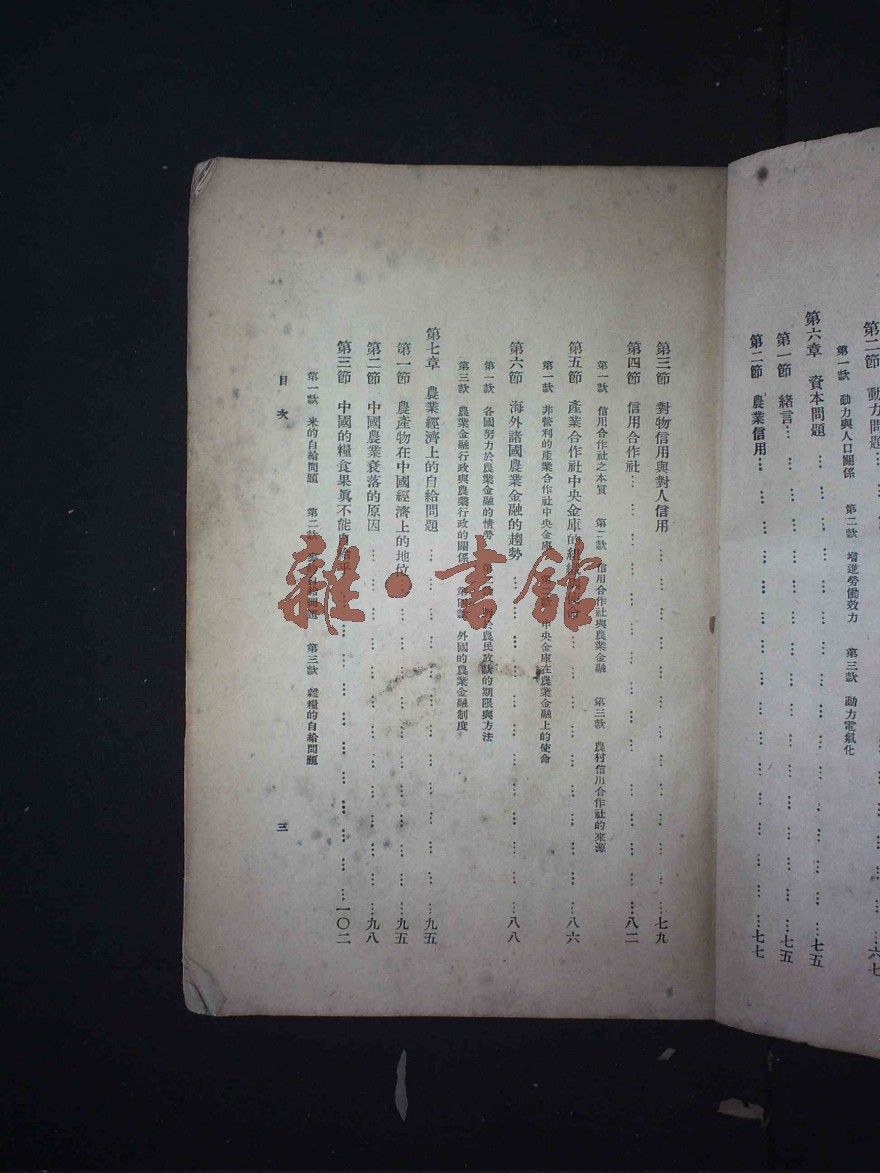 第二節 動力問題………六七
第一款 動力與人口關係 第二款 增進勞働效力 第三款 動力電氣化
第六章 資本問題………七五
第一節 緒言………七五
第二節 農業信用………七七
第三節 對物信用與對人信用………七九
第四節 信用合作社………八二
第一款 信用合作社之本質 第二款 信用合作社與農業金融 第三款 農村信用合作社的來源
第五節 產業合作社中央金庫的組織………八六
第一款 非營利的產業合作社中央金庫 中央金庫在農業金融上的使命
第六節 海外諸國農業金融的趨勢………八八
第一款 各國努力於農業金融的情勢 農民放款的期限與方法
第三款 農業金融行政與農業行政的關係 第四款 外國的農業金融制度
第七章 農業經濟上的自給問題………九五
第一節 農產物在中國經濟上的地位………九五
第二節 中國農業衰落的原因………九八
第三節 中國的糧食果眞不能自給乎………一〇二
第一款 米的自給問題 第二款 自給問題 第三款 雜糧的自給問題
目次
三
雜·書館